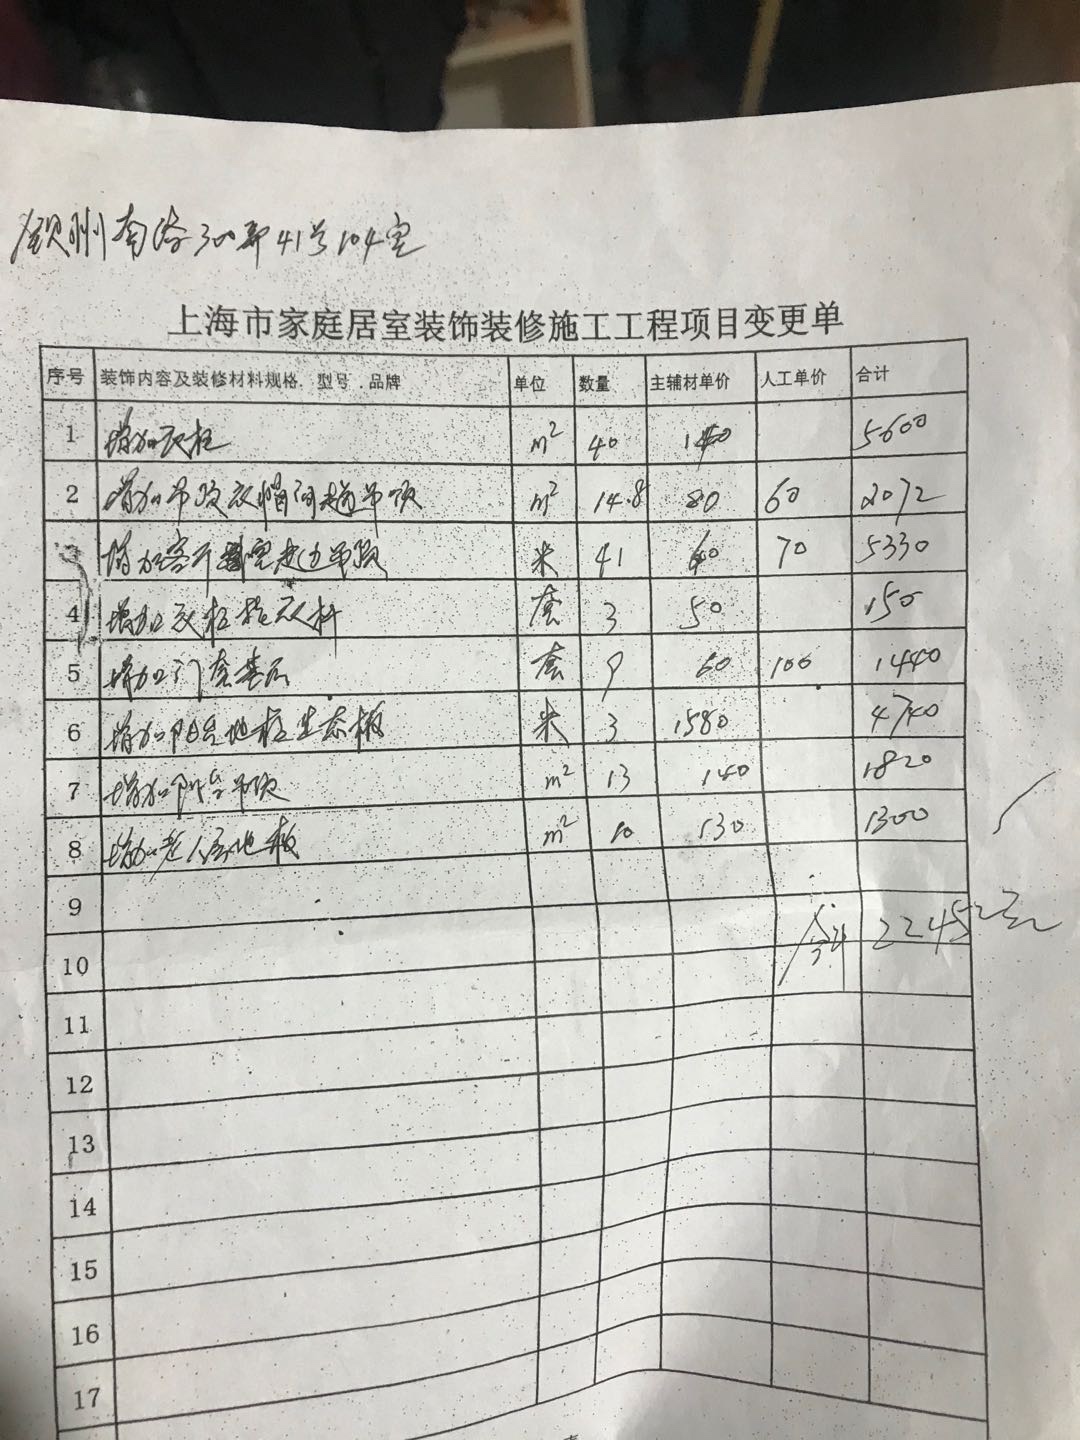 钦州南路300弄41号104室
上海市家庭居室装饰装修施工工程项目变更单
序号 装饰内容及装修材料规格.型号.品牌 单位 数量 主辅材单价 人工单价 合计
1 增加衣柜 m² 40 140 5600
2 增加吊顶 吊顶 m² 14.8 80 60 2072
增加客厅 走边吊顶 米 41 60 70 5330
4 增加衣柜 套 3 50 150
5 增加门套基层 套 9 60 100 1440
6 增加阳台地柜生态板 米 3 1580 4740
7 增加阳台吊顶 m² 13 140 1820
8 增加老人房地板 m² 10 130 1300
9
10 合计 22452元
11
12
13
14
15
16
17